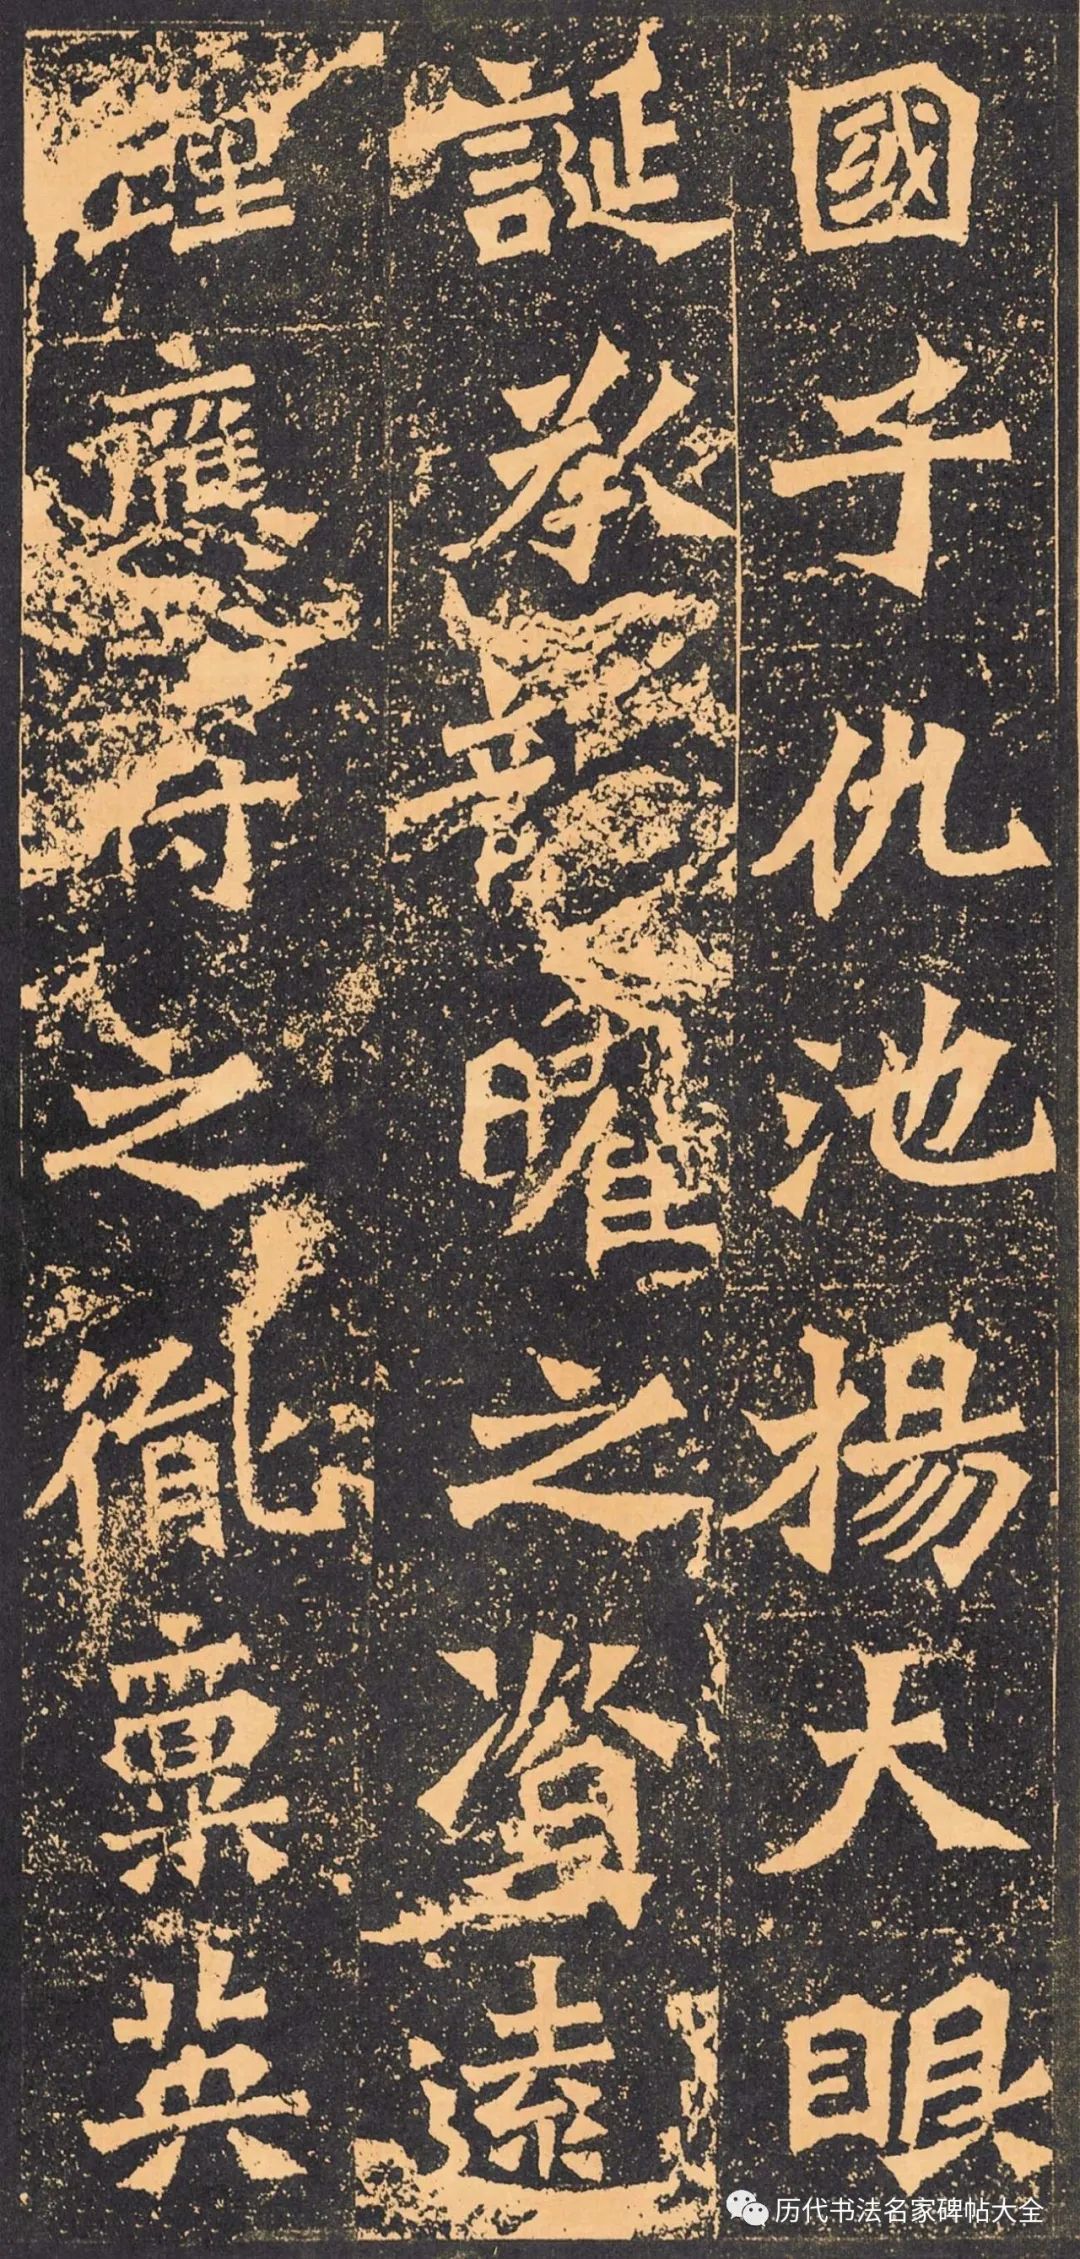 國子仇池楊大眼
誕承龍曜之資遠
踵應符之胤稟英
历代书法名家碑帖大全